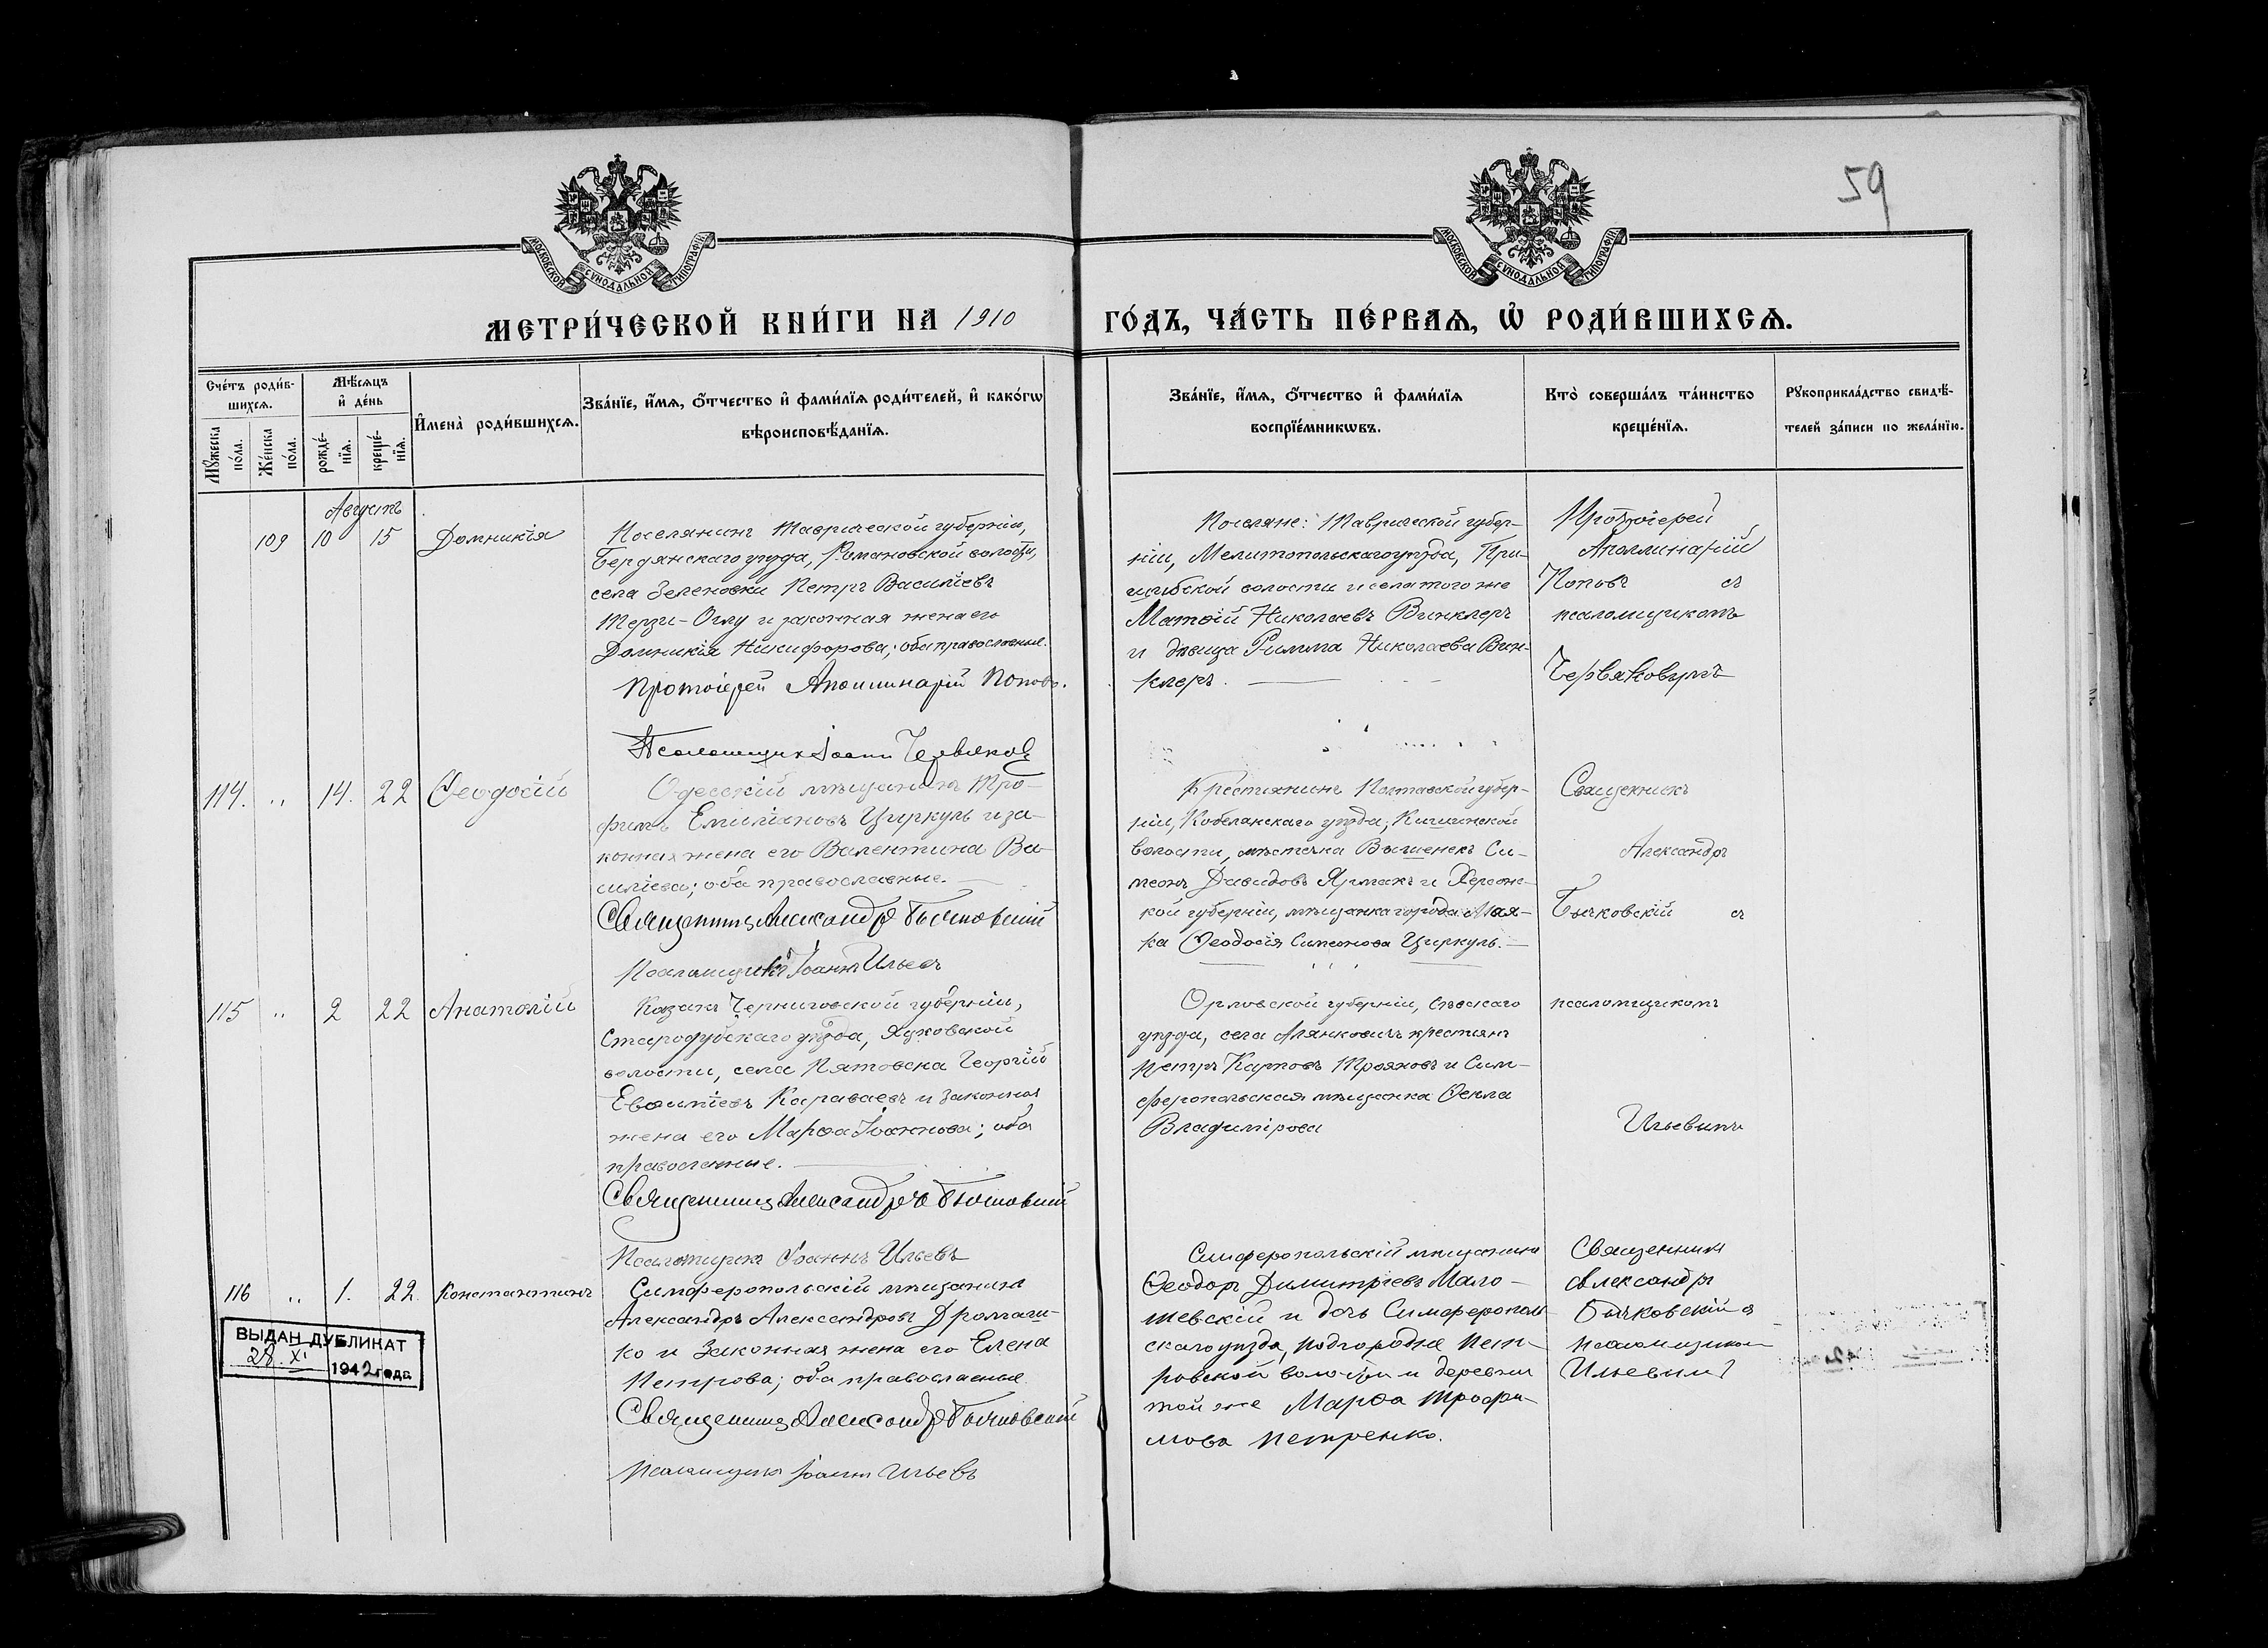 59
МОСКОВСКОЙ СѴНОДАЛЬНОЙ ТИПОГРАФІИ
МОСКОВСКОЙ СѴНОДАЛЬНОЙ ТИПОГРАФІИ
МЕТРИ́ЧЕСКОЙ КНИ́ГИ НА 1910
ГО́ДЪ, ЧА́СТЬ ПЕ́РВАѦ, Ѡ҆ РОДИ́ВШИХСѦ.
Сче́тъ роди́в-
шихсѧ.
Мѣ́сѧцъ
и҆ де́нь
Мꙋжеска
по́ла.
Же́нска
по́ла.
рожде́-
нїѧ.
креще́-
нїѧ.
И҆мена̀ роди́вшихсѧ.
Зва́нїе, и҆́мѧ, ѻ҆́тчество и҆ фами́лїѧ роди́телей, и҆ како́гѡ
вѣроисповѣ́данїѧ.
Зва́нїе, и҆́мѧ, ѻ҆́тчество и҆ фами́лїѧ
воспрїе́мникѡвъ.
Кто̀ соверша́лъ та́инство
креще́нїѧ.
Рꙋкоприкла́дство свидѣ́-
телей за́писи по жела́нїю.
Августъ
109 10 15 Домникія
Поселянинъ Таврической губерніи,
Бердянскаго уѣзда, Романовской волости,
села Зеленовки Петръ Василіевъ
Терзи-Оглу и законная жена его
Домникія Никифорова; оба православные.
Протоіерей Аполлинарій Поповъ.
Псаломщикъ Іоаннъ Червяковъ
Поселяне: Таврической губер-
ніи, Мелитопольскаго уѣзда, При-
шибской волости и села того же
Матѳій Николаевъ Винклеръ
и дѣвица Римма Николаева Вин-
клеръ.
Протоіерей
Аполлинарій
Поповъ съ
псаломщикомъ
Червяковымъ
114. " 14. 22 Ѳеодосій
Одесскій мѣщанинъ Тро-
фимъ Емиліановъ Циркуль и за-
конная жена его Валентина Ва-
силіева; оба православные.
Священникъ Александръ Бычковскій
Псаломщикъ Іоаннъ Ильевъ
Крестьянинъ Полтавской губер-
ніи, Кобелякскаго уѣзда, Кишинской
волости, мѣстечка Вишенекъ Си-
меонъ Давидовъ Ярмакъ и Херсонс-
кой губерніи, мѣщанка города Мая-
ка Ѳеодосія Симеонова Циркуль.
Священникъ
Александръ
Бычковскій съ
115 " 2 22 Анатолій
Казакъ Черниговской губерніи,
Стародубскаго уѣзда, Яцковской
волости, села Пятовска Георгій
Евѳиміевъ Караваевъ и законная
жена его Марѳа Іоаннова; оба
православные.
Священникъ Александръ Бычковскій
Псаломщикъ Іоаннъ Ильевъ
Орловской губерніи, Сѣвскаго
уѣзда, села крестьян
Петръ Карповъ Трояновъ и Сим-
феропольская мѣщанка Ѳекла
Владимірова
псаломщикомъ
Ильевымъ
116 " 1. 22. Константинъ
Симферопольскій мѣщанинъ
Александръ Александровъ
ко и законная жена его Елена
Петрова; оба православные
Священникъ Александръ Бычковскій
Псаломщикъ Іоаннъ Ильевъ
Симферопольскій мѣщанинъ
Ѳеодоръ Димитріевъ Мало-
шевскій и дочь Симферополь
скаго уѣзда, Подгородне Пет-
ровской волости и деревни
той же Марѳа Трофи-
мова Петренко.
Священникъ
Александръ
Бычковскій съ
псаломщиком
Ильевым
ВЫДАН ДУБЛИКАТ
28. XI 1942 года